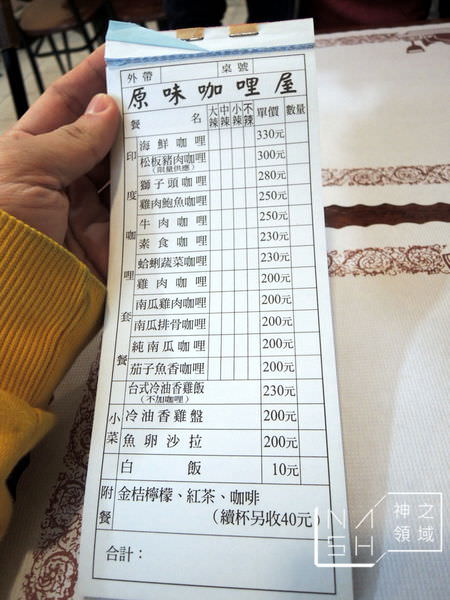 外帶 桌號
原味咖哩屋
餐名 大辣 中辣 小辣 不辣 單價 數量
印度咖哩套餐
海鮮咖哩 330元
松板豬肉咖哩 300元
(限量供應)
獅子頭咖哩 280元
雞肉鮑魚咖哩 250元
牛肉咖哩 250元
素食咖哩 230元
蛤蜊蔬菜咖哩 230元
雞肉咖哩 200元
南瓜雞肉咖哩 200元
南瓜排骨咖哩 200元
純南瓜咖哩 200元
茄子魚香咖哩 200元
台式冷油香雞飯 230元
(不加咖哩)
小菜
冷油香雞盤 200元
魚卵沙拉 200元
白飯 10元
附餐
金桔檸檬、紅茶、咖啡
(續杯另收40元)
合計：
INASH
神之領域